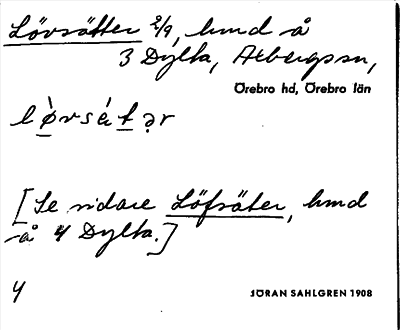 Lövsätter 2/9, hmd å
3 Dylta, Axbergssn,
Örebro hd, Örebro län
lø̀vsétər
[Se vidare Löfsäter, hmd
å 4 Dylta.]
4
JÖRAN SAHLGREN 1908